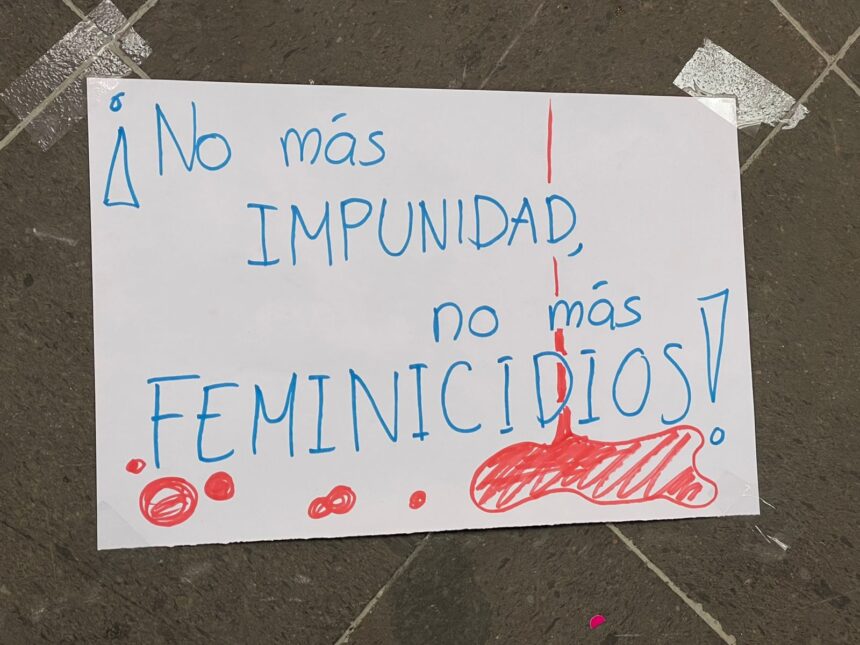 ¡No más
IMPUNIDAD,
no más
FEMINICIDIOS!